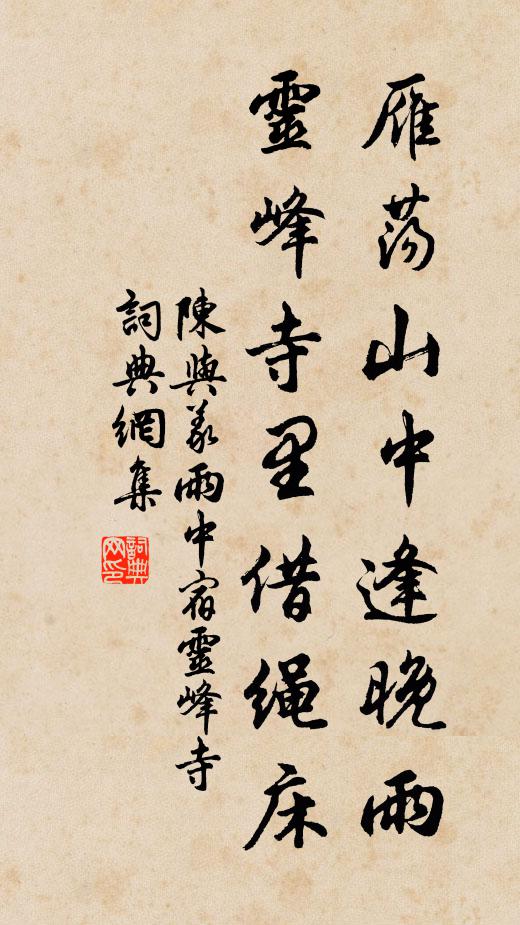 雁荡山中逢晚雨
靈峰寺里借绳床
陳與義雨中宿靈峰寺
詞典網集
詞典网印